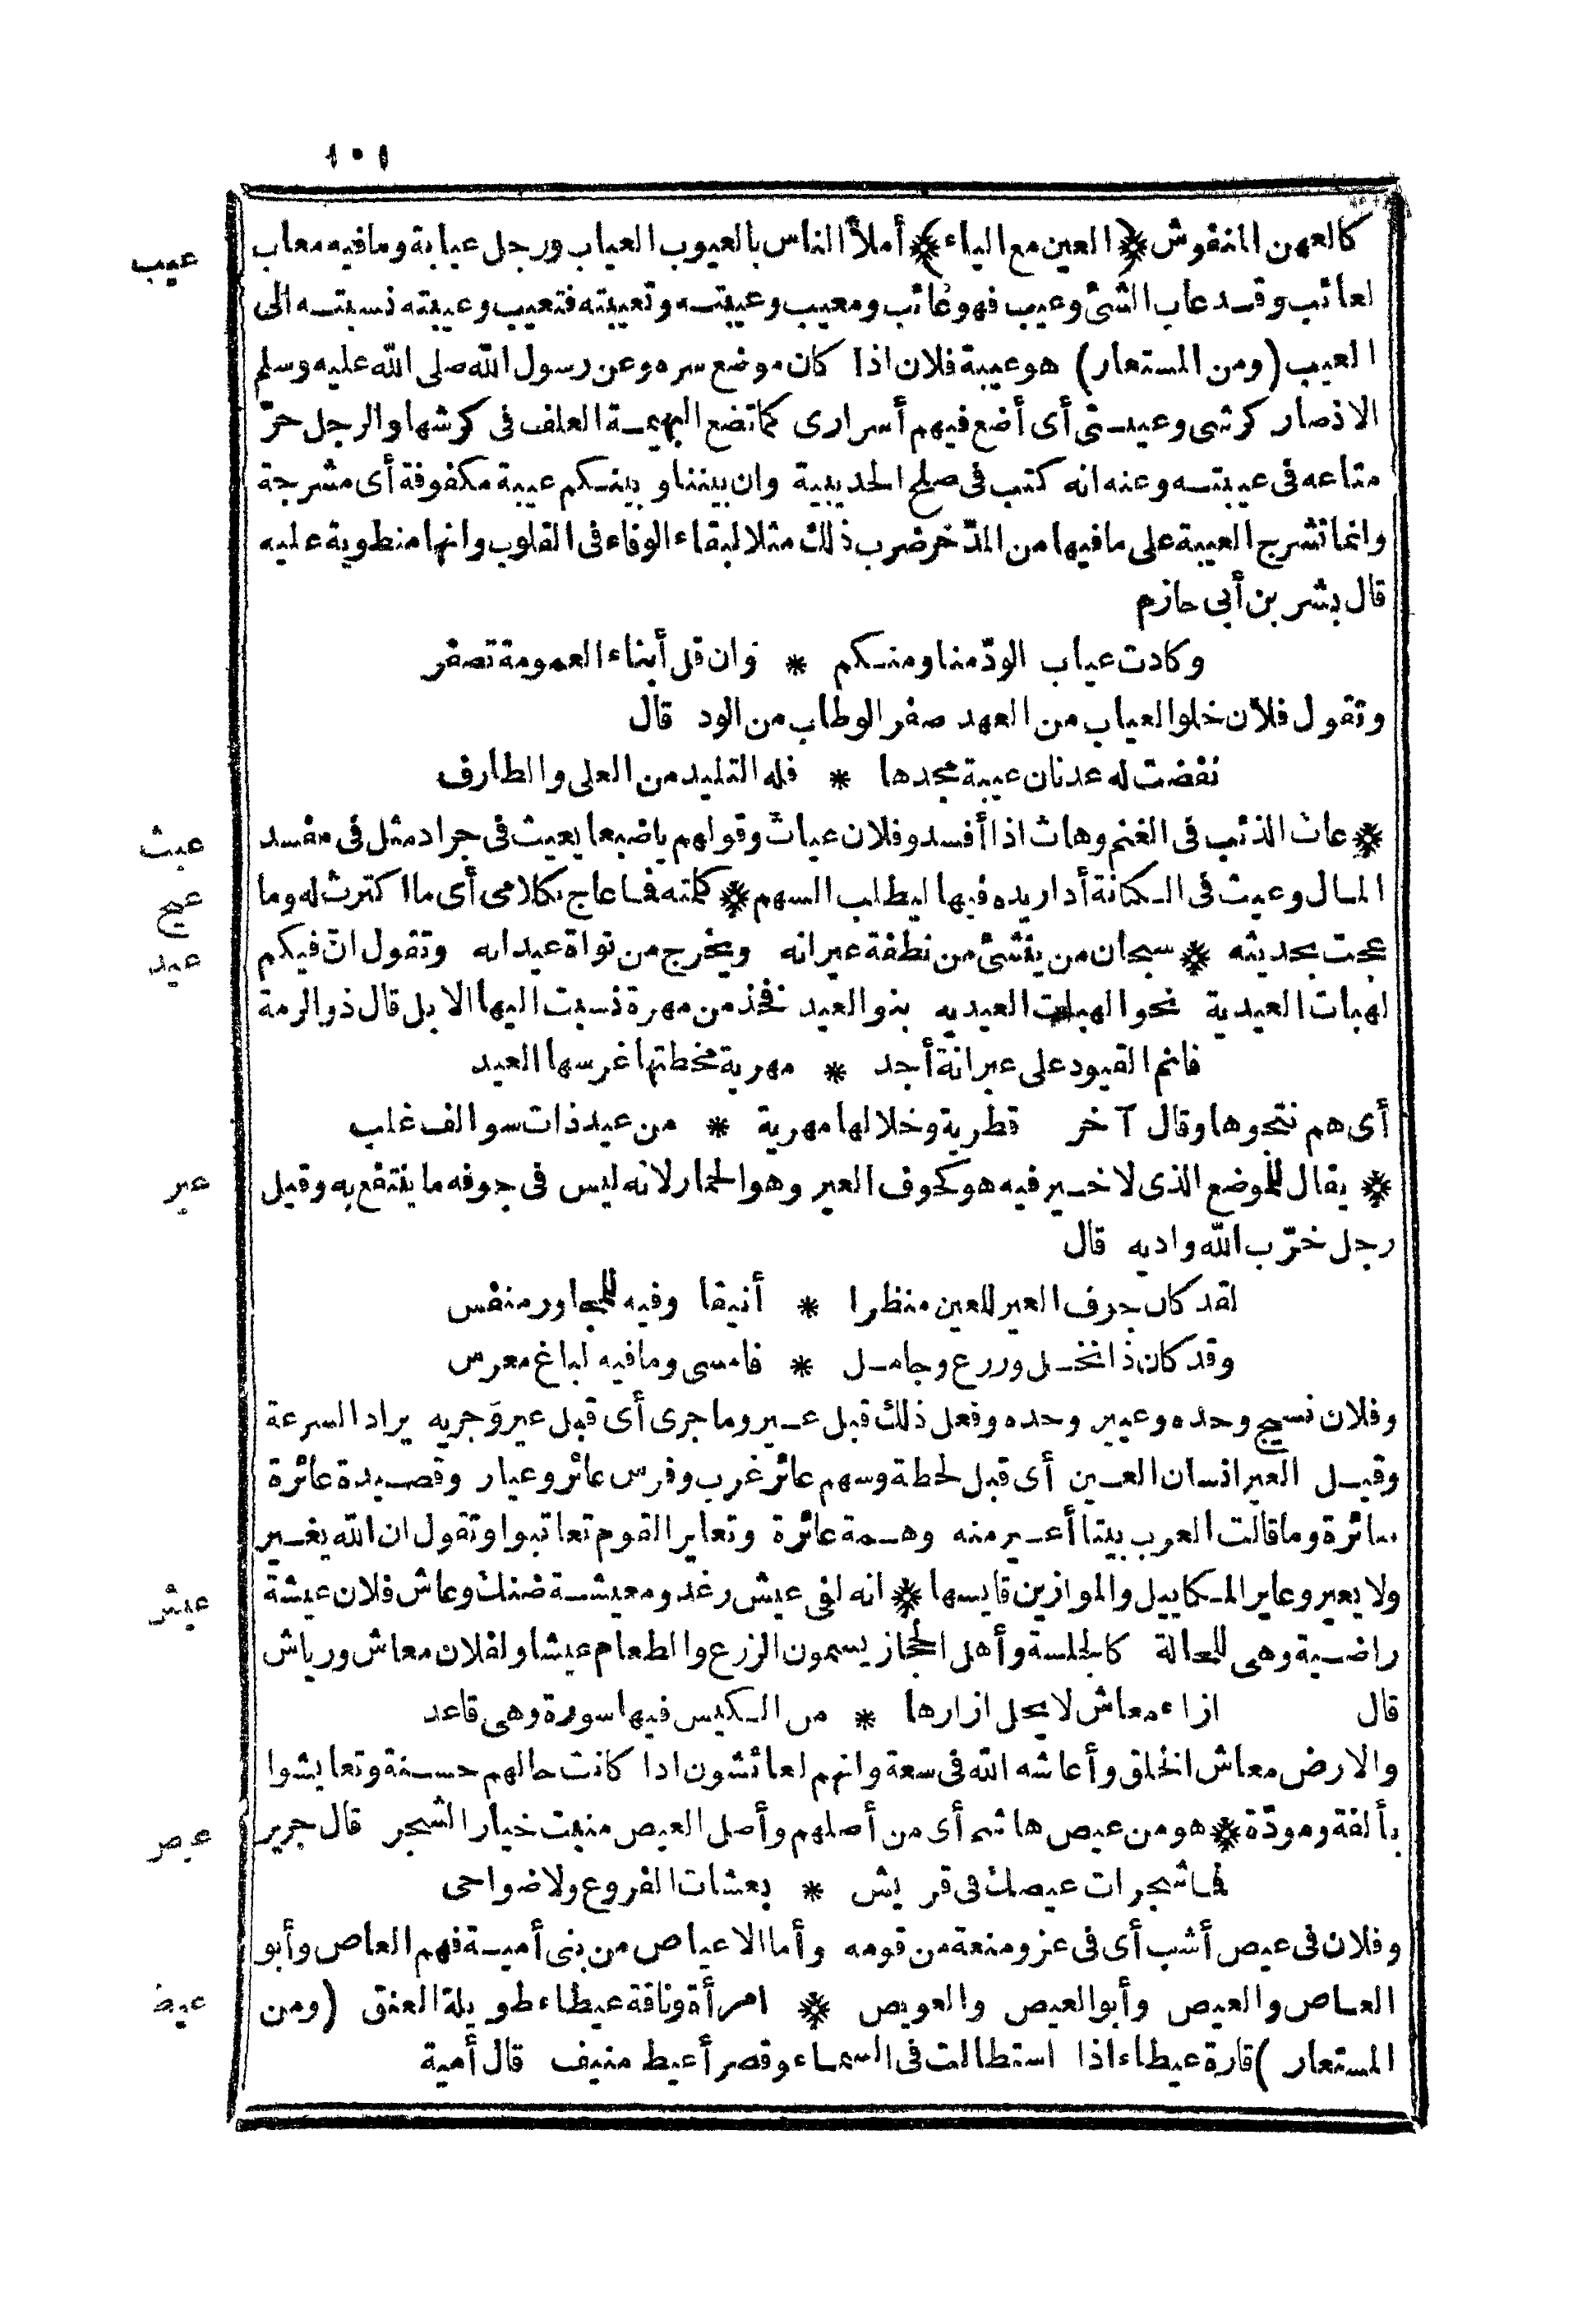 ١٠١
كالعهن المنفوش ﴿العين مع الياء﴾ أملأ الناس بالعيوب العياب ورجل عيابة وما فيه معاب
عيب
لعائب وقد عاب الشئ وعيب فهو عائب ومعيب وعيبته وتعيبته فتعيب وعيبته نسبته الى
العيب (ومن المستعار) هو عيبة فلان اذا كان موضع سره وعن رسول الله صلى الله عليه وسلم
الانصار كرشى وعيبتى أى أضع فيهم أسرارى كما تضع البهيمة العلف فى كرشها والرجل حرّ
متاعه فى عيبته وعنه انه كتب فى صلح الحديبية وان بيننا وبينكم عيبة مكفوفة أى مشرجة
وانما تشرج العيبة على ما فيها من المدّخر ضرب ذلك مثلا لبقاء الوفاء فى القلوب وانها منطوية عليه
قال بشر بن أبى حازم
وكادت عياب الودّ منا ومنكم * وان قل أبناء العمومة تصفر
وتقول فلان خلو العياب من العهد صفر الوطاب من الود قال
نفضت له عدنان عيبة مجدها * فله التليد من العلى والطارف
❊ عاث الذئب فى الغنم وهاث اذا أفسد وفلان عياث وقولهم يا ضبعا يعيث فى جراد مثل فى مفسد
عيث
المال وعيث فى الكنانة أدار يده فيها ليطلب السهم ❊ كلمته فما عاج بكلامى أى ما اكترث له وما
عيج
عجت بحديثه ❊ سبحان من ينشئ من نطفة عيرانه ويخرج من نواة عيدانه وتقول انّ فيكم
عيد
لهبات العيدية نحو الهبات العيديه بنو العيد فخذ من مهرة نسبت اليها الابل قال ذو الرمة
فانم القيود على عيرانة أجد * مهرية مخطتها غرسها العيد
أى هم نتجوها وقال آخر قطرية وخلالها مهرية * من عيد ذات سوالف غلب
❊ يقال للموضع الذى لا خير فيه هو كجوف العير وهو الحمار لانه ليس فى جوفه ما ينتفع به وقيل
عير
رجل خرّب الله واديه قال
لقد كان جوف العير للعين منظرا * أنيقا وفيه للمجاور منفس
وقد كان ذا نخل وزرع وجامل * فامسى وما فيه لباغ معرس
وفلان نسيج وحده وعيير وحده وفعل ذلك قبل عير وما جرى أى قبل عير وجريه يراد السرعة
وقيل العير انسان العين أى قبل لحظة وسهم عائر غرب وفرس عائر وعيار وقصيدة عائرة
سائرة وما قالت العرب بيتا أعير منه وهمة عائرة وتعاير القوم تعاتبوا وتقول ان الله يغير
ولا يعير وعاير المكاييل والموازين قايسها ❊ انه لفى عيش رغد ومعيشة ضنك وعاش فلان عيشة
عيش
راضية وهى للحالة كالجلسة وأهل الحجاز يسمون الزرع والطعام عيشا ولفلان معاش ورياش
قال ازاء معاش لا يحل ازارها * من الكيس فيها سورة وهى قاعد
والارض معاش الخلق وأعاشه الله فى سعة وانهم لعائشون اذا كانت حالهم حسنة وتعايشوا
بألفة ومودّة ❊ هو من عيص هاشم أى من أصلهم وأصل العيص منبت خيار الشجر قال جرير
عيص
فما شجرات عيصك فى قريش * بعشات الفروع ولا ضواحى
وفلان فى عيص أشب أى فى عز ومنعة من قومه وأما الاعياص من بنى أمية فهم العاص وأبو
العاص والعيص وأبو العيص والعويص ❊ امرأة وناقة عيطاء طويلة العنق (ومن
عيط
المستعار) قارة عيطاء اذا استطالت فى السماء وقصر أعيط منيف قال أمية